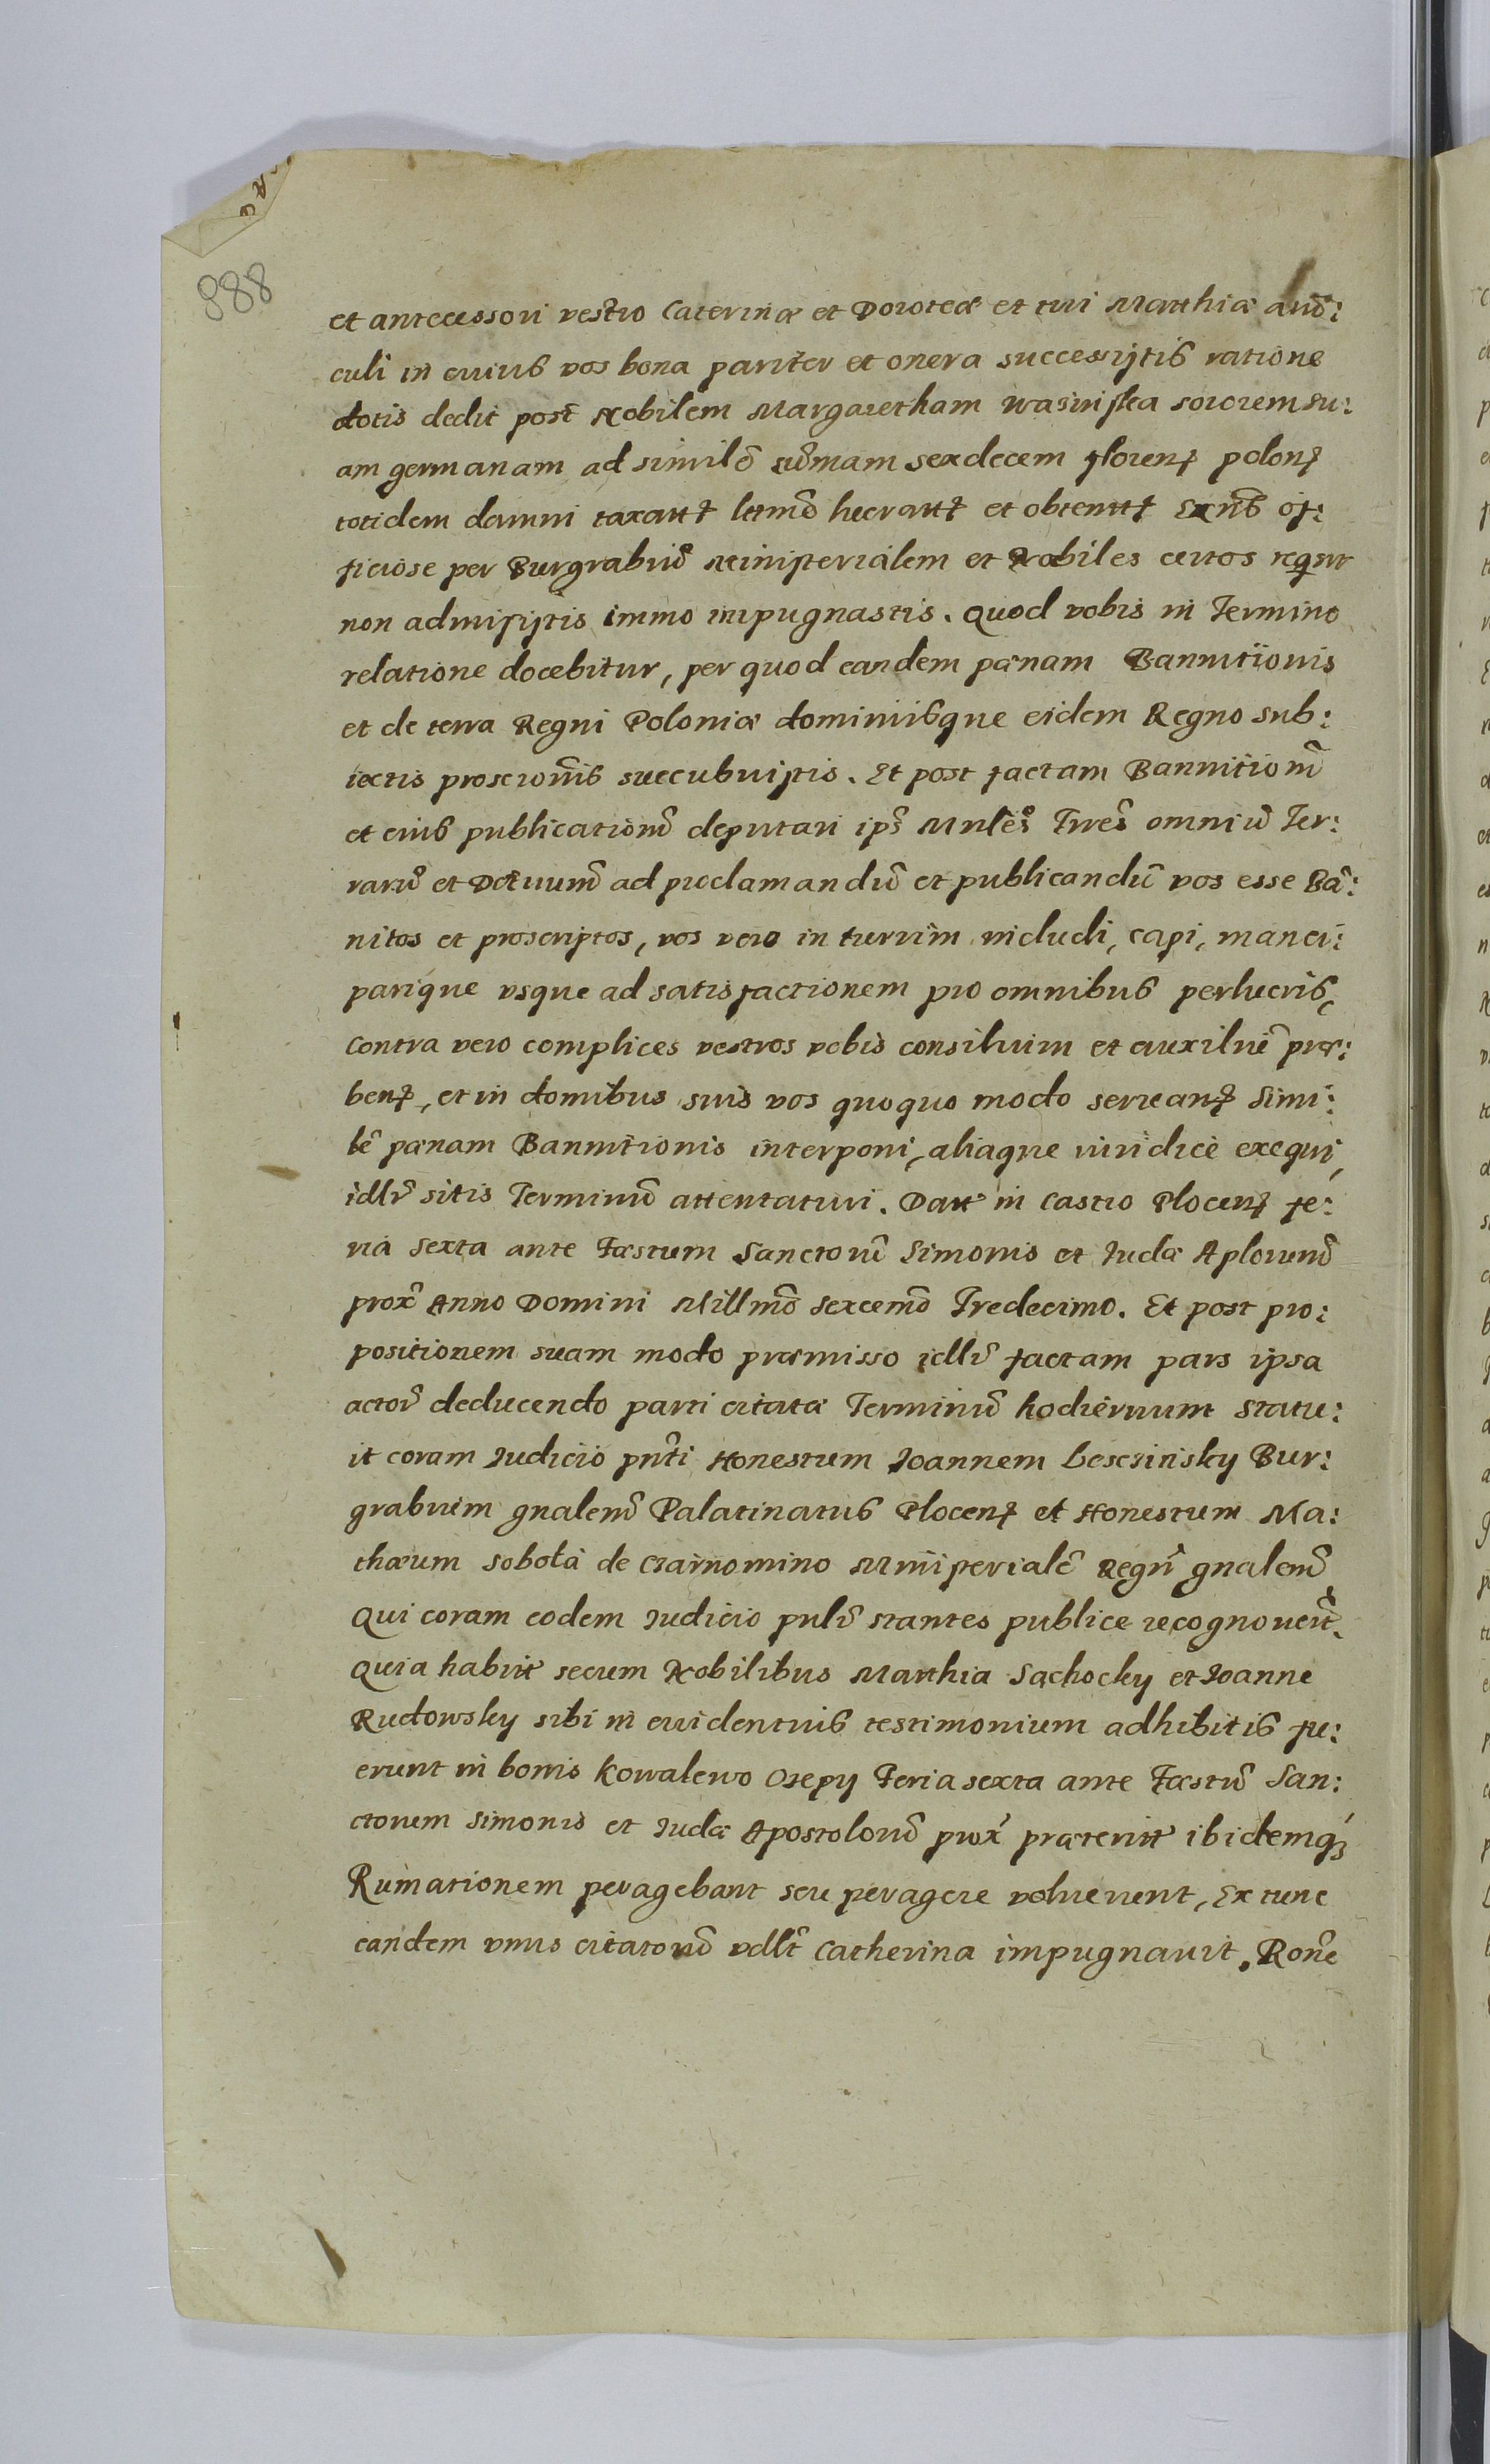 888
et antecessori vestro Caterinæ et Doroteæ et tui Matthiæ auũ:
culi in cuius vos bona pariter et onera successistis ratione
dotis dedit post Nobilem Margaretham wasinska sororem su:
am germanam ad similẽ sũmam sexdecem florenꝭ polonꝭ
totidem damni taxattꝭ lttmẽ lucrattꝭ et obtenttꝭ Exñs of:
ficiose per Burgrabiũ Ministerialem et Nobiles certos reqsit
non admisistis immo impugnastis. Quod vobis in Termino
relatione docebitur, per quod eandem pænam Bannitionis
et de terra Regni Poloniæ dominiisque eidem Regno sub:
iectis proscrionis succubuistis. Et post factam Bannitionẽ
et eius publicationẽ deputari ips Mnles Trẽs omniũ Ter:
rarũ et Dctuumũ ad proclamandũ et publicandũ vos esse Bã:
nitos et proscriptos, vos vero in turrim includi, capi, manci:
parique vsque ad satisfactionem pro omnibus perlucris,
Contra vero complices vestros vobis consilium et auxiliũ præ:
benꝭ, et in domibus suis vos quoquo modo servanꝭ simi:
lẽ pænam Bannitionis interponi, aliaque iuridicè exequi,
idlr̃ sitis Terminũ attentaturi. Datt in Castro Plocenꝭ fe:
ria sexta ante Fæstum Sanctorũ Simonis et Iudæ Aplorumũ
prox̃ Anno Domini Millmõ Sexcemõ Tredecimo. Et post pro:
positionem suam modo præmisso idlr̃ factam pars ipsa
actor̃ deducendo parti citatæ Terminũ hodiernum statu:
it coram Iudicio pñti Honestum Ioannem Lesczinsky Bur:
grabium gnalemũ Palatinatus Plocenꝭ et Honestum Ma:
thæum sobota de czarnomino Ministerialẽ Regñ gnalemũ
Qui coram eodem Iudicio pnlr̃ stantes publice recognouert̃.
Quia habitt secum Nobilibus Matthia Sachocky et Ioanne
Rudowsky sibi in euidentius testimonium adhibitis fu:
erunt in bonis Kowalewo Osepy Feria sexta ante Fæstũ San:
ctorum Simonis et Iudæ Apostolorũ prox̃ præteritt ibidemqꝫ
Rumationem peragebant seu peragere voluerunt, Ex tunc
eandem vnus citatorũ vdlt̃ Catherina impugnauit. Roñe